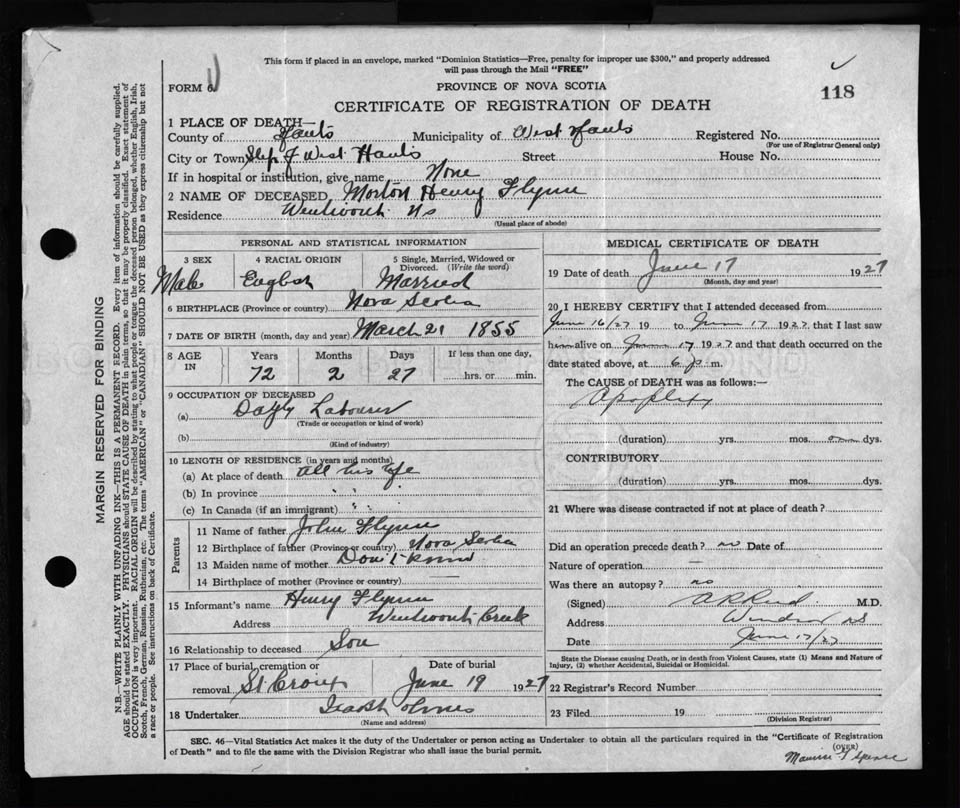 This form if placed in an envelope, marked "Dominion Statistics—Free, penalty for improper use $300," and properly addressed
will pass through the Mail "FREE"
FORM 6
PROVINCE OF NOVA SCOTIA
118
CERTIFICATE OF REGISTRATION OF DEATH
1 PLACE OF DEATH—
County of Hants Municipality of West Hants Registered No.
(For use of Registrar General only)
City or Town West Hants Street House No.
If in hospital or institution, give name None
2 NAME OF DECEASED Morton Henry Flynn
Residence Wentworth NS
(Usual place of abode)
PERSONAL AND STATISTICAL INFORMATION
3 SEX 4 RACIAL ORIGIN 5 Single, Married, Widowed or
Divorced. (Write the word)
Male English Married
6 BIRTHPLACE (Province or country) Nova Scotia
7 DATE OF BIRTH (month, day and year) March 21 1855
8 AGE IN Years Months Days If less than one day,
72 2 27 hrs. or min.
9 OCCUPATION OF DECEASED
(a) Labourer
(Trade or occupation or kind of work)
(b)
(Kind of industry)
10 LENGTH OF RESIDENCE (in years and months)
(a) At place of death all his life
(b) In province " "
(c) In Canada (if an immigrant) " "
Parents
11 Name of father John Flynn
12 Birthplace of father (Province or country) Nova Scotia
13 Maiden name of mother Don't know
14 Birthplace of mother (Province or country)
15 Informant's name Henry Flynn
Address Wentworth Creek
16 Relationship to deceased Son
17 Place of burial, cremation or Date of burial
removal St Croix June 19 1927
18 Undertaker
(Name and address)
MEDICAL CERTIFICATE OF DEATH
19 Date of death June 17 1927
(Month, day and year)
20 I HEREBY CERTIFY that I attended deceased from
June 16/27 19 to June 17 1927 that I last saw
him alive on June 17 1927 and that death occurred on the
date stated above, at 6 p m.
The CAUSE of DEATH was as follows:—
Apoplexy
(duration) yrs. mos. dys.
CONTRIBUTORY
(duration) yrs. mos. dys.
21 Where was disease contracted if not at place of death?
Did an operation precede death? no Date of
Nature of operation —
Was there an autopsy? no
(Signed) M.D.
Address Windsor NS
Date June 17/27
State the Disease causing Death, or in death from Violent Causes, state (1) Means and Nature of
Injury, (2) whether Accidental, Suicidal or Homicidal.
22 Registrar's Record Number
23 Filed 19
(Division Registrar)
SEC. 46—Vital Statistics Act makes it the duty of the Undertaker or person acting as Undertaker to obtain all the particulars required in the "Certificate of Registration
of Death" and to file the same with the Division Registrar who shall issue the burial permit.
(OVER)
MARGIN RESERVED FOR BINDING
N.B.—WRITE PLAINLY WITH UNFADING INK—THIS IS A PERMANENT RECORD. Every item of information should be carefully supplied.
AGE should be stated EXACTLY. PHYSICIANS should STATE CAUSE OF DEATH in plain terms, so that it may be properly classified. Exact statement of
OCCUPATION is very important. RACIAL ORIGIN will be described by stating to what people or tongue the deceased person belonged, whether English, Irish,
Scotch, French, German, Russian, Ruthenian, etc. The terms "AMERICAN" or "CANADIAN" SHOULD NOT BE USED as they express citizenship but not
a race or people. See instructions on back of Certificate.